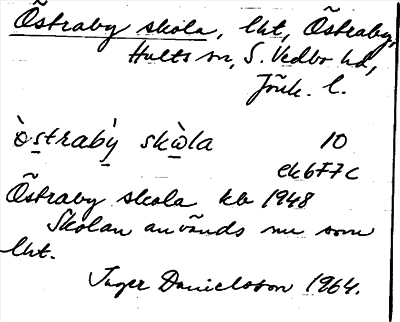 Östraby skola, lht, Östraby,
Hults sn, S. Vedbo hd,
Jönk. l.
ö̀straby̔̀ skὼla 10
ek6F7c
Östraby skola kb 1948
Skolan används nu som
lht.
Inger Danielsson 1964.